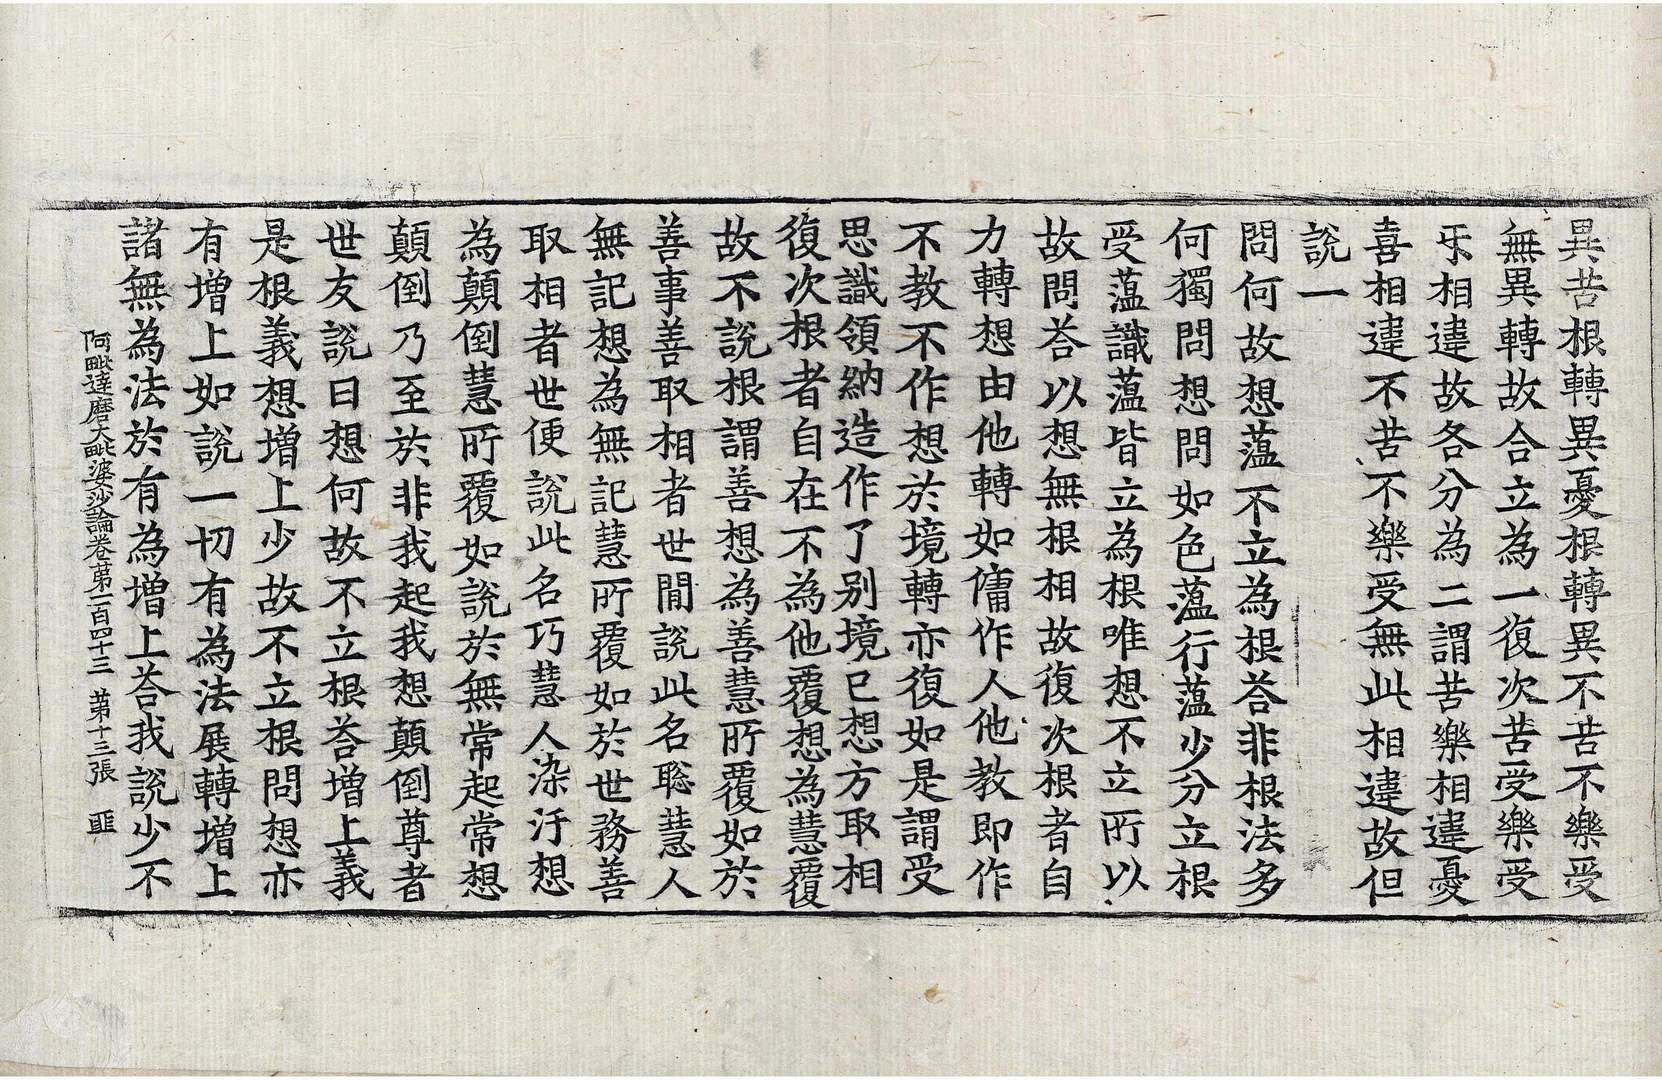 異苦根轉異憂根轉異不苦不樂受
無異轉故合立為一復次苦受樂受
乐相違故各分為二謂苦樂相違憂
喜相違不苦不樂受無此相違故但
說一
問何故想薀不立為根荅非根法多
何獨問想問如色薀行薀少分立根
受薀識薀皆立為根唯想不立所以
故問荅以想無根相故復次根者自
力轉想由他轉如傭作人他教即作
不教不作想於境轉亦復如是謂受
思識領納造作了別境已想方取相
復次根者自在不為他覆想為慧覆
故不說根謂善想為善慧所覆如於
善事善取相者世間說此名聡慧人
無記想為無記慧所覆如於世務善
取相者世便說此名巧慧人染汙想
為顛倒慧所覆如說於無常起常想
顛倒乃至於非我起我想顛倒尊者
世友說曰想何故不立根荅增上義
是根義想增上少故不立根問想亦
有增上如說一切有為法展轉增上
諸無為法於有為增上荅我說少不
阿毗達磨大毗婆沙論卷苐一百四十三 苐十三張 匪